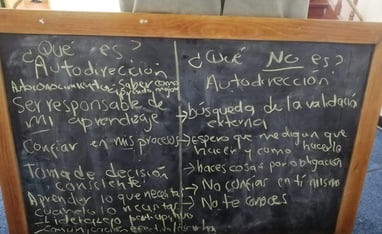 ¿Qué es?
Autodirección
Autoconocimiento → saber como
aprendo mejor
Ser responsable de
mi aprendizaje
Confiar en mis procesos
Toma de decisión
consciente
Aprender lo que necesitas
cuando lo necesitas
Liderazgo participativo
Comunicación
¿Qué NO es?
Autodirección
→ búsqueda de la validación
externa
→ espero que me digan que
hacer y como hacerlo
→ haces cosas por obligación
→ No confiar en ti mismo
→ No te conoces